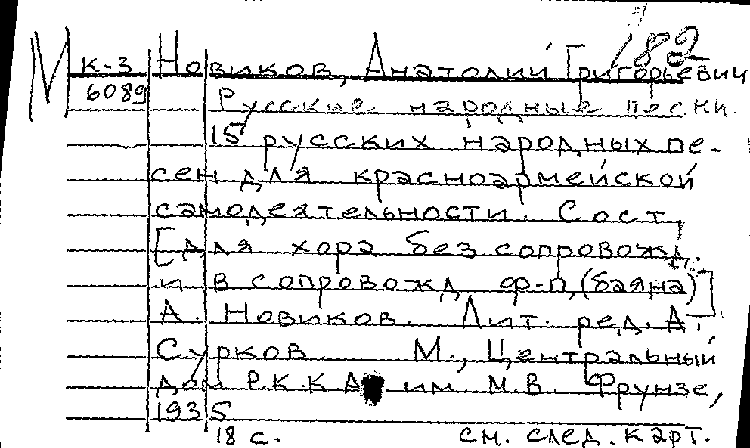 182
М к-3 Новиков, Анатолий Григорьевич
6089 Русские народные песни
15 русских народных пе-
сен для красноармейской
самодеятельности. Сост.
[для хора без сопровожд.
и в сопровожд. ф-п, (баяна)]
А. Новиков. Лит. ред. А.
Сурков М., Центральный
дом Р.К.К.А им. М.В. Фрунзе,
1935
18 с. см. след. карт.